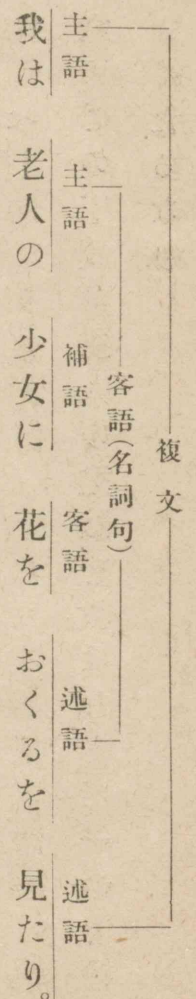 複文
客語(名詞句)
主語 主語 補語 客語 述語 述語
我は 老人の 少女に 花を おくるを 見たり。